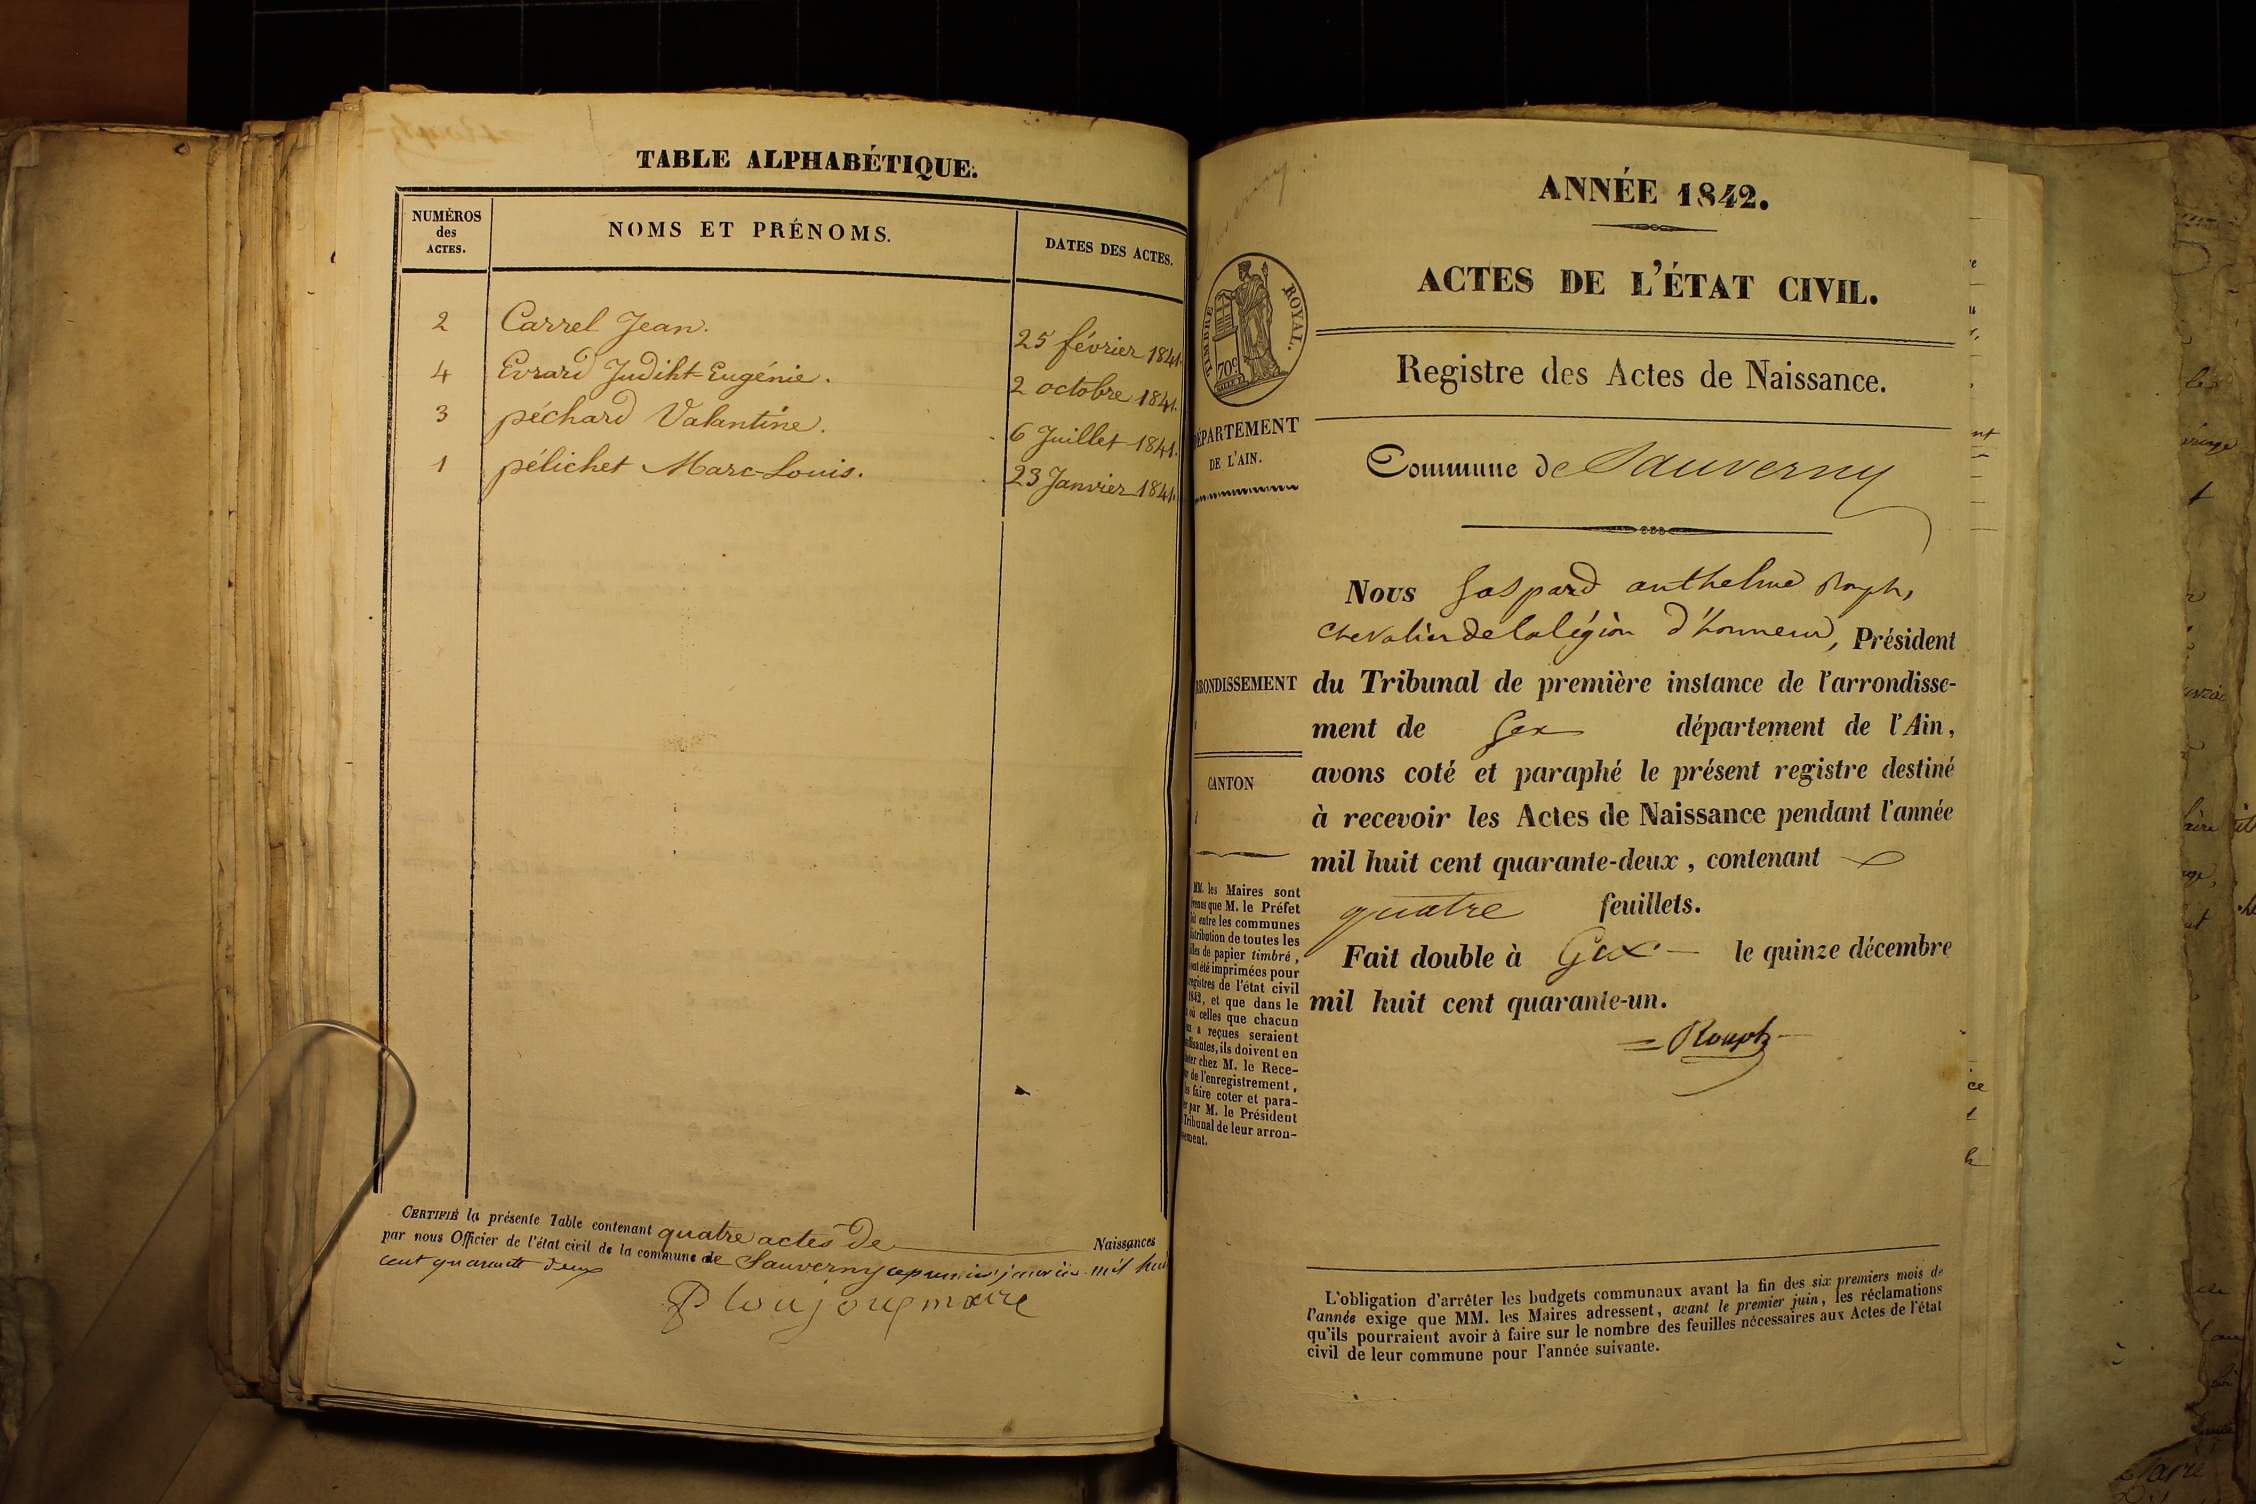 TABLE ALPHABÉTIQUE.
NUMÉROS
des
ACTES.
NOMS ET PRÉNOMS.
DATES DES ACTES.
2 Carrel Jean. 25 février 1841.
4 Evrard Judiht-Eugénie. 2 octobre 1841.
3 péchard Valantine. 6 Juillet 1841.
1 pélichet Marc-Louis. 23 Janvier 1841.
CERTIFIÉ la présente Table contenant quatre actes de Naissances
par nous Officier de l'état civil de la commune de Sauverny ce premier janvier mil huit
cent quarante deux
maire
ANNÉE 1842.
ACTES DE L'ÉTAT CIVIL.
TIMBRE ROYAL.
70c
Registre des Actes de Naissance.
DÉPARTEMENT
DE L'AIN.
Commune de Sauverny
Nous Gaspard anthelme Rouph,
chevalier de la légion d'honneur, Président
RRONDISSEMENT
du Tribunal de première instance de l'arrondisse-
ment de Gex département de l'Ain,
avons coté et paraphé le présent registre destiné
CANTON
à recevoir les Actes de Naissance pendant l'année
mil huit cent quarante-deux, contenant
quatre feuillets.
Fait double à Gex le quinze décembre
mil huit cent quarante-un.
Rouph
MM. les Maires sont
que M. le Préfet
entre les communes
distribution de toutes les
de papier timbré,
ont été imprimées pour
registres de l'état civil
1842, et que dans le
où celles que chacun
a reçues seraient
ils doivent en
chez M. le Rece-
de l'enregistrement,
faire coter et para-
par M. le Président
Tribunal de leur arron-
sement.
L'obligation d'arrêter les budgets communaux avant la fin des six premiers mois de
l'année exige que MM. les Maires adressent, avant le premier juin, les réclamations
qu'ils pourraient avoir à faire sur le nombre des feuilles nécessaires aux Actes de l'état
civil de leur commune pour l'année suivante.